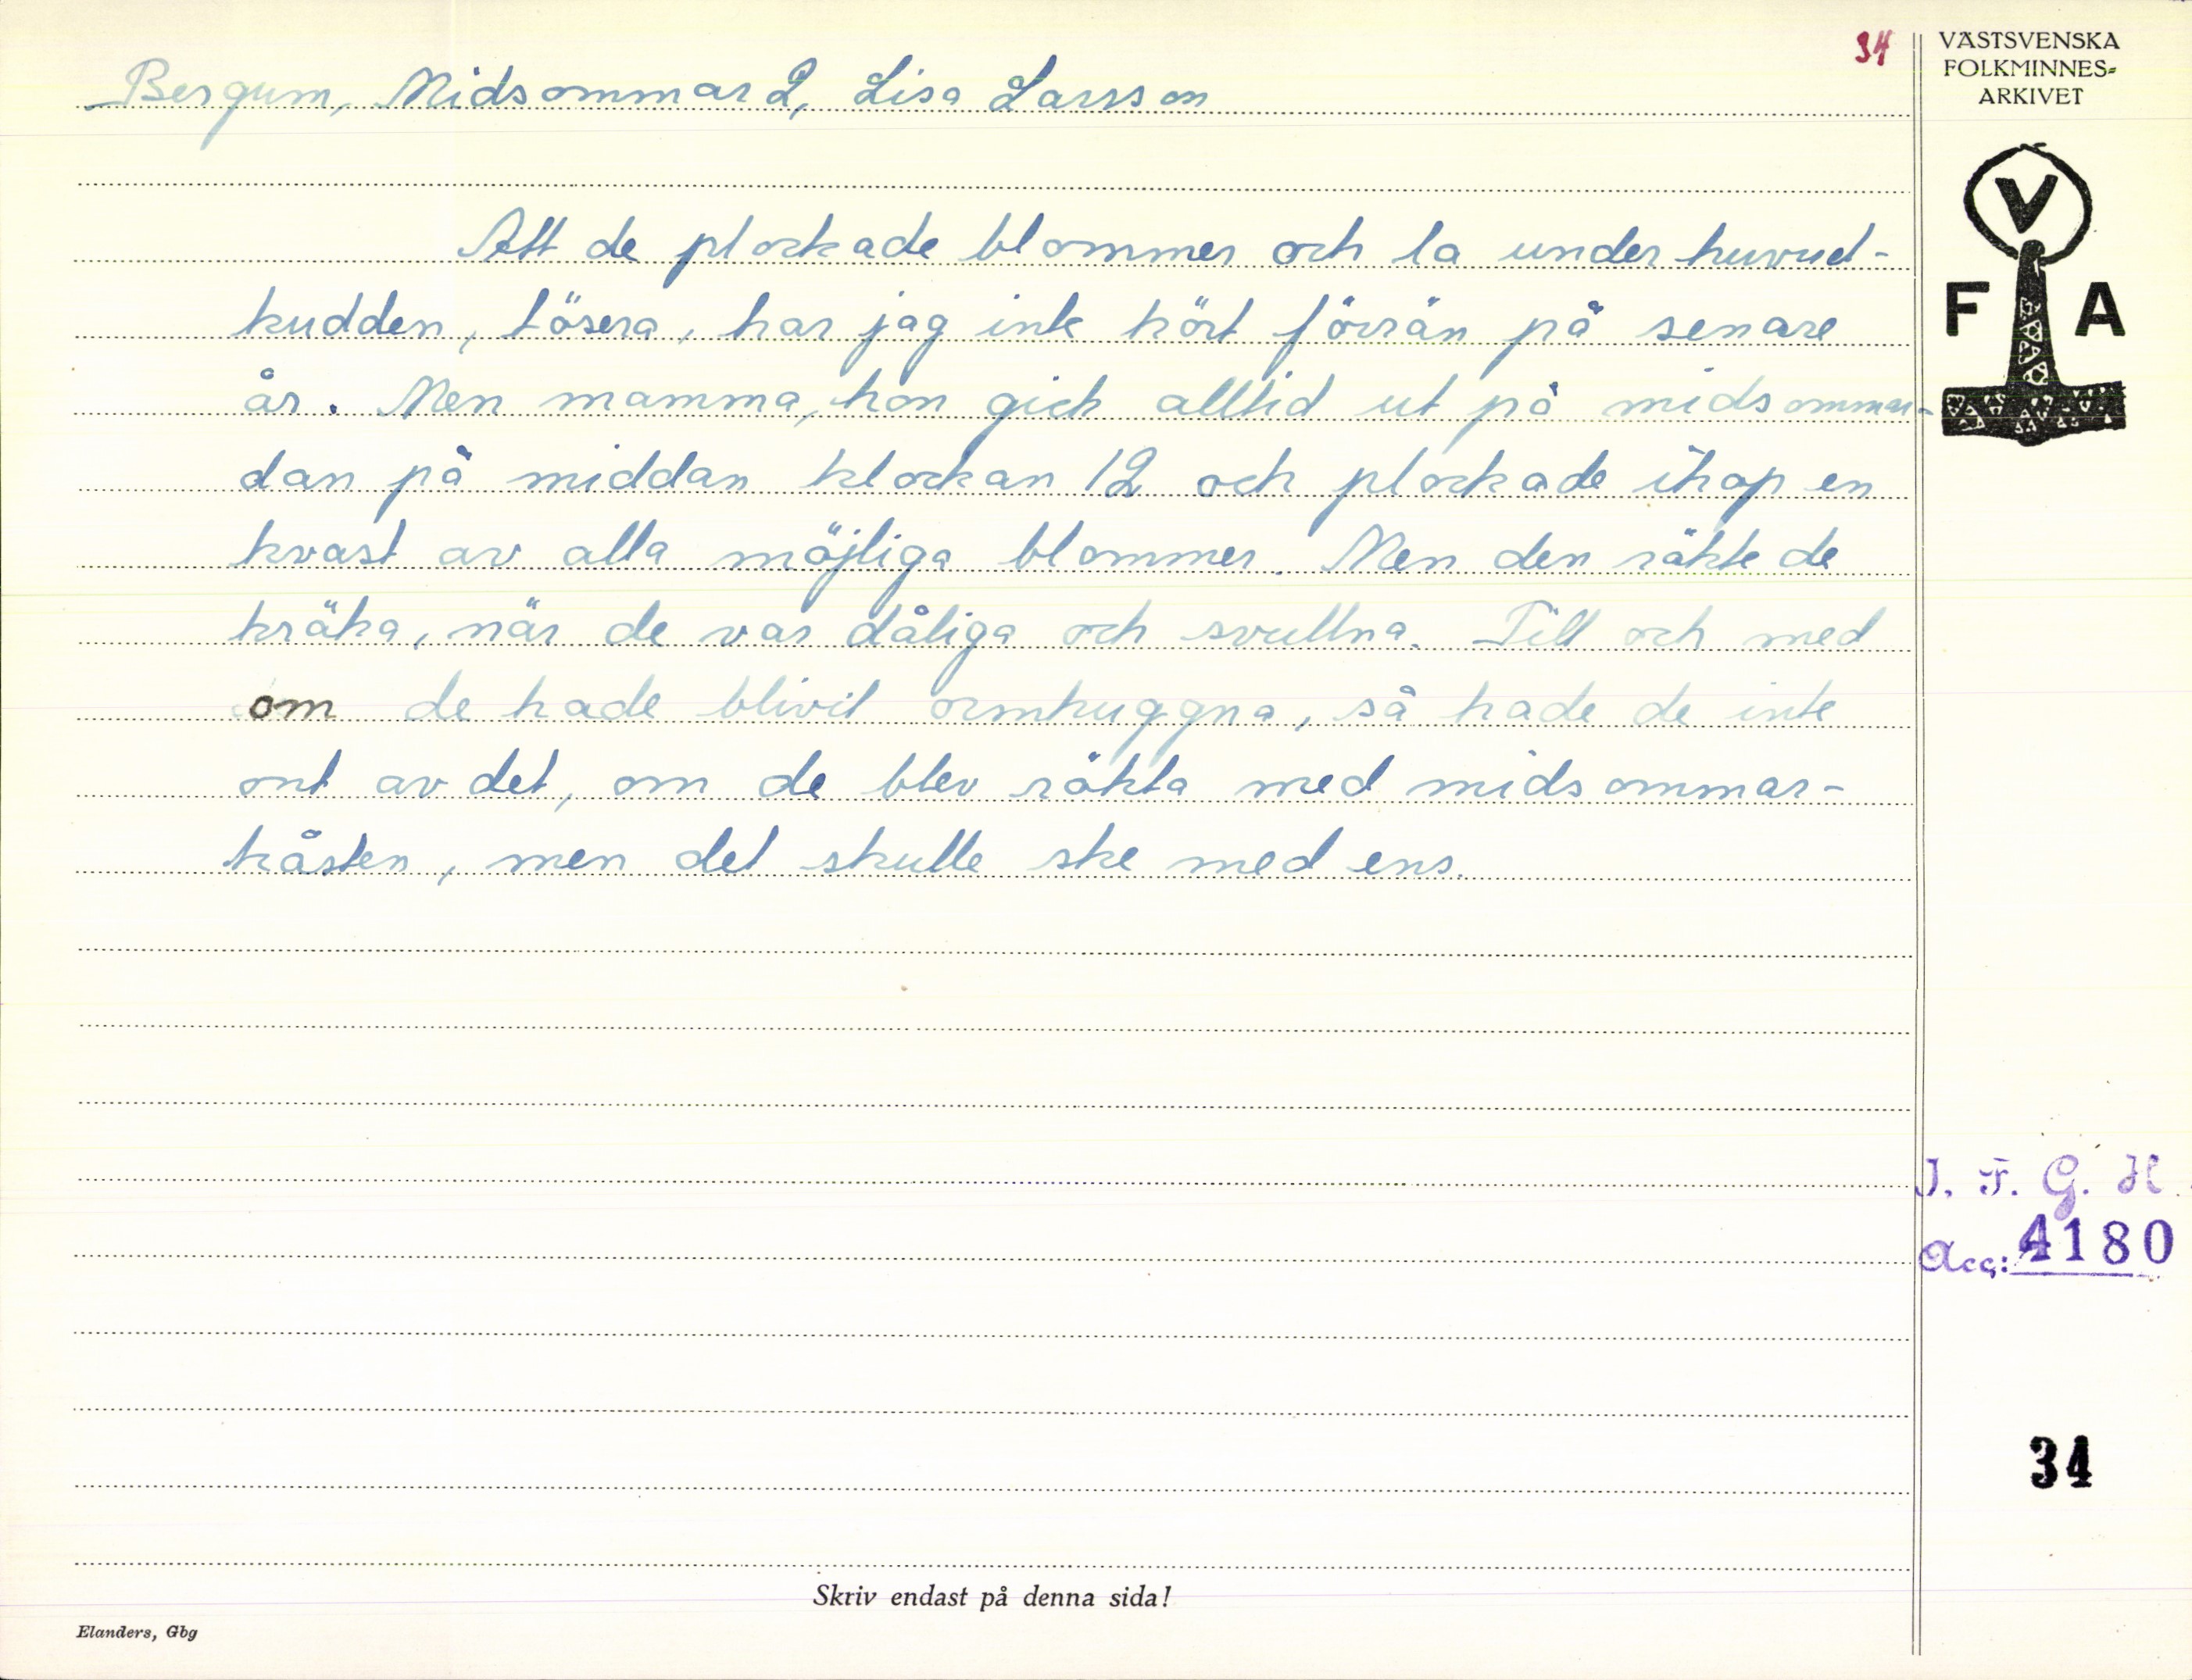 34
VÄSTSVENSKA
FOLKMINNES-
ARKIVET
Bergum, Midsommar 2, Lisa Larsson
V
F A
Att de plockade blommer och la under huvud-
kudden, tösera, har jag inte hört förrän på senare
år. Men mamma, hon gick alltid ut på midsommar-
dan på middan klockan 12 och plockade ihop en
kvast av alla möjliga blommer. Men den rökte de
kräka, när de var dåliga och svullna. Till och med
om de hade blivit ormhuggna, så hade de inte
ont av det, om de blev rökta med midsommar-
kåsten, men det skulle ske med ens.
I. F. G. H.
Acc: 4180
34
Skriv endast på denna sida!
Elanders, Gbg